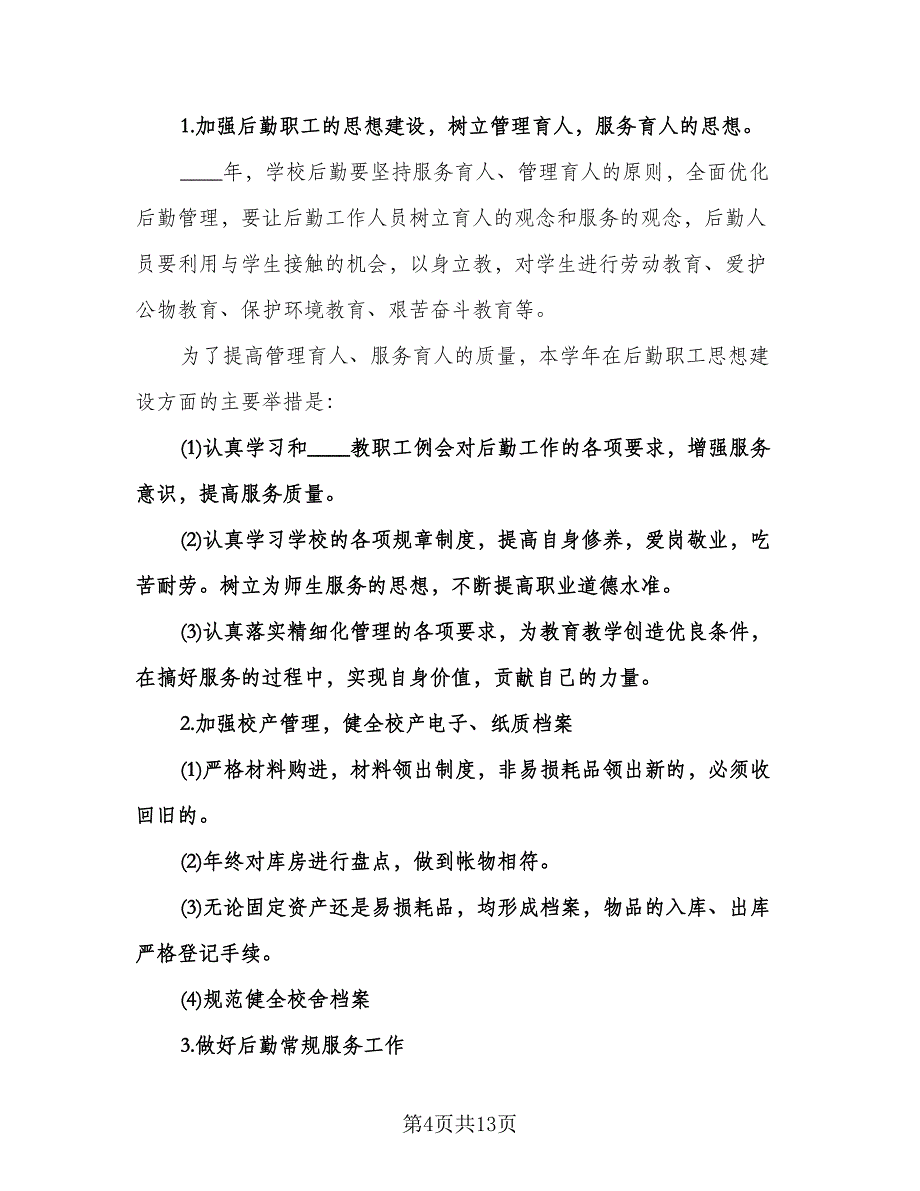 1.加强后勤职工的思想建设，树立管理育人，服务育人的思想。
____年，学校后勤要坚持服务育人、管理育人的原则，全面优化
后勤管理，要让后勤工作人员树立育人的观念和服务的观念，后勤人
员要利用与学生接触的机会，以身立教，对学生进行劳动教育、爱护
公物教育、保护环境教育、艰苦奋斗教育等。
为了提高管理育人、服务育人的质量，本学年在后勤职工思想建
设方面的主要举措是：
(1)认真学习和____教职工例会对后勤工作的各项要求，增强服务
意识，提高服务质量。
(2)认真学习学校的各项规章制度，提高自身修养，爱岗敬业，吃
苦耐劳。树立为师生服务的思想，不断提高职业道德水准。
(3)认真落实精细化管理的各项要求，为教育教学创造优良条件，
在搞好服务的过程中，实现自身价值，贡献自己的力量。
2.加强校产管理，健全校产电子、纸质档案
(1)严格材料购进，材料领出制度，非易损耗品领出新的，必须收
回旧的。
(2)年终对库房进行盘点，做到帐物相符。
(3)无论固定资产还是易损耗品，均形成档案，物品的入库、出库
严格登记手续。
(4)规范健全校舍档案
3.做好后勤常规服务工作
第4页共13页